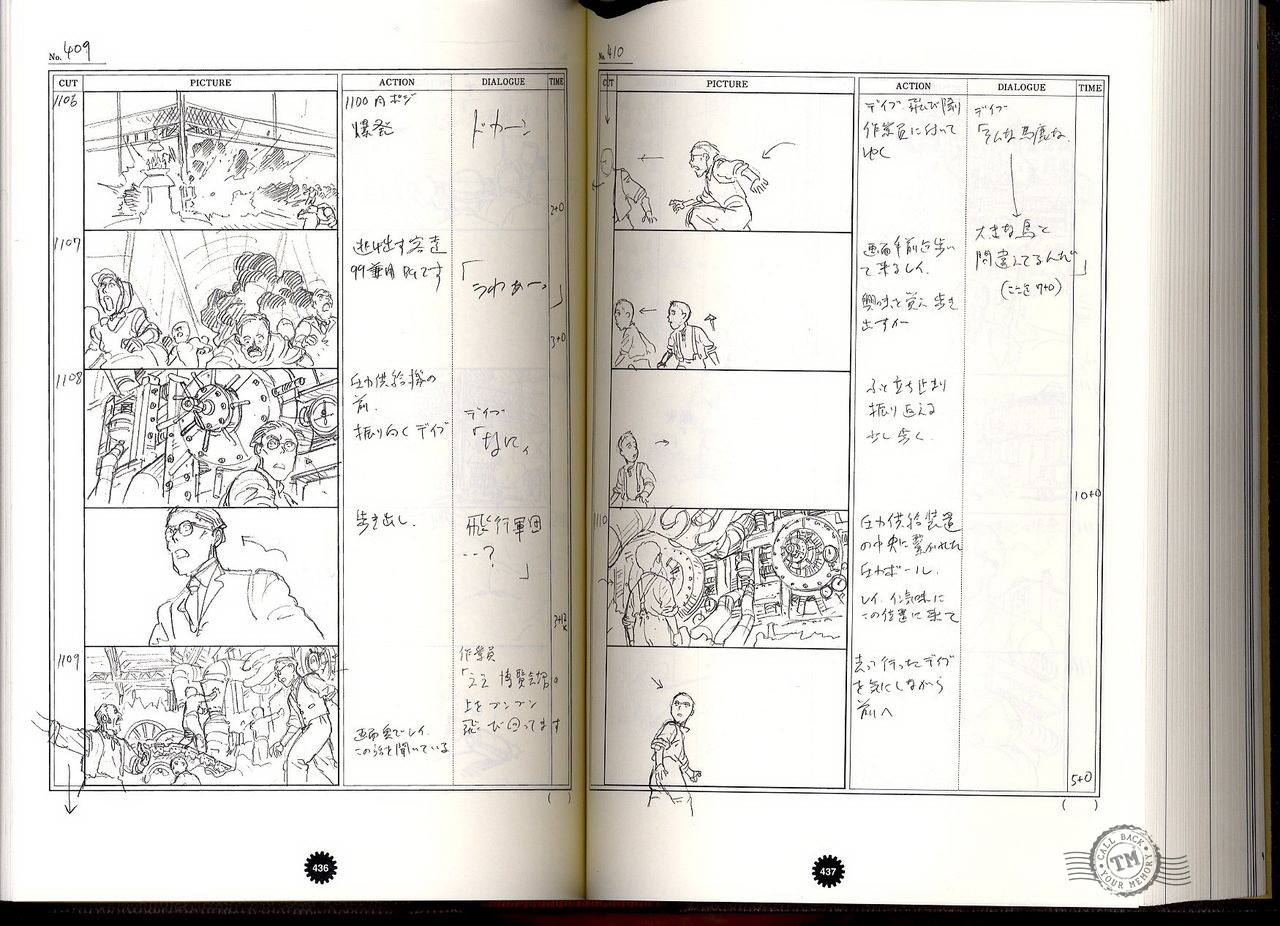 No. 409
CUT PICTURE ACTION DIALOGUE TIME
1106
1100 内ポジ
爆発
ドカーン
2+0
1107
逃げ出す客達
99兼用 BGです
「うわぁー。」
3+0
1108
圧力供給機の
前.
振り向くデイブ
デイブ
「なに、
歩き出し.
飛行軍団
‥?
」
1109
画面奥でレイ.
この話を聞いている
作業員
博覧会場
上をブンブン
飛び回ってます
( )
436
No. 410
CUT PICTURE ACTION DIALOGUE TIME
デイブ 飛び降り
作業員に付いて
ゆく
デイブ
「そんな馬鹿な.
大きな鳥と
間違えてるんだ」
(ここまで7+0)
画面手前に歩い
て来るレイ.
興味を覚え歩き
出すが
ふと立ち止まり
振り返える
少し歩く.
10+0
1110
圧力供給装置
の中央に繋がれた
圧力ボール.
この位置に来て
去って行ったデイブ
を気にしながら
前へ
5+0
( )
437
CALL BACK
TM
YOUR MEMORY